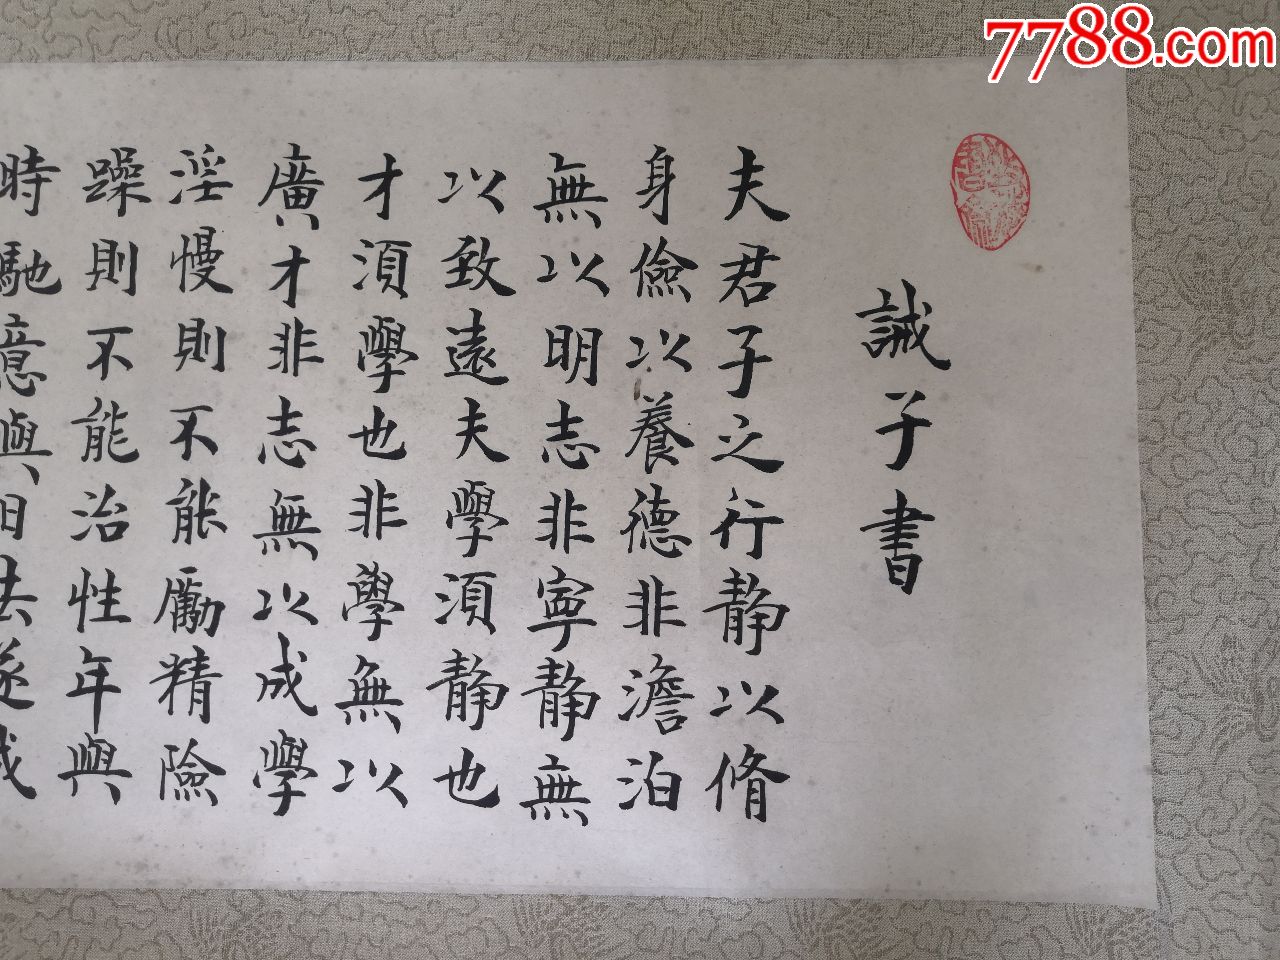 7788.com
誡子書
夫君子之行静以脩
身儉以養德非澹泊
無以明志非寧静無
以致遠夫學須静也
才須學也非學無以
廣才非志無以成學
淫慢則不能勵精險
躁則不能治性年與
時馳意與日去遂成